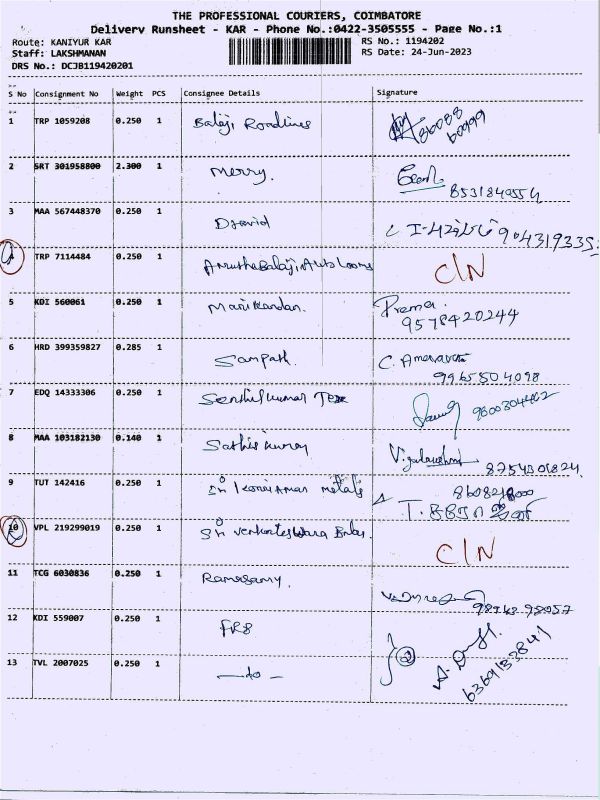 THE PROFESSIONAL COURIERS, COIMBATORE
Delivery Runsheet - KAR - Phone No.:0422-3505555 - Page No.:1
Route: KANIYUR KAR RS No.: 1194202
Staff: LAKSHMANAN RS Date: 24-Jun-2023
DRS No.: DCJB119420201
S No Consignment No Weight PCS Consignee Details Signature
1 TRP 1059208 0.250 1 Balaji Roadlines
2 SRT 301958800 2.300 1 Merry.
8531849554
3 MAA 567448370 0.250 1 David
4 TRP 7114484 0.250 1 C/N
5 KDI 560061 0.250 1 Manikandan. Prema.
9578420244
6 HRD 399359827 0.285 1 Sampath.
9965504098
7 EDQ 14333306 0.250 1 Senthilkumar Tex
9600304402
8 MAA 103182130 0.140 1 Sathiskumar
9 TUT 142416 0.250 1 Sri metals
10 VPL 219299019 0.250 1 Sri Venkateswara C/N
11 TCG 6030836 0.250 1 Ramasamy.
12 KDI 559007 0.250 1
13 TVL 2007025 0.250 1 -do-
6369133841